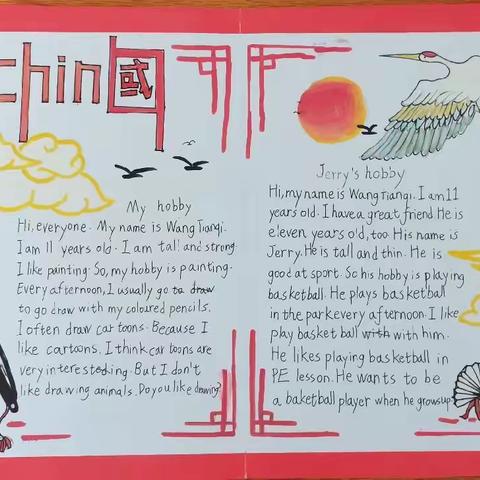 chin國
My hobby
Hi, everyone. My name is Wang Tianqi.
I am 11 years old. I am tall and strong.
I like painting. So, my hobby is painting.
Every afternoon, I usually go to draw
to go draw with my coloured pencils.
I often draw cartoons. Because I
like cartoons. I think cartoons are
very interesteding. But I don't
like drawing animals. Do you like drawing?
Jerry's hobby
Hi, my name is Wang Tianqi. I am 11
years old. I have a great friend. He is
eleven years old, too. His name is
Jerry. He is tall and thin. He is
good at sport. So his hobby is playing
basketball. He plays basketball
in the park every afternoon. I like
play basketball with with him.
He likes playing basketball in
PE lesson. He wants to be
a baketball player when he grows up.